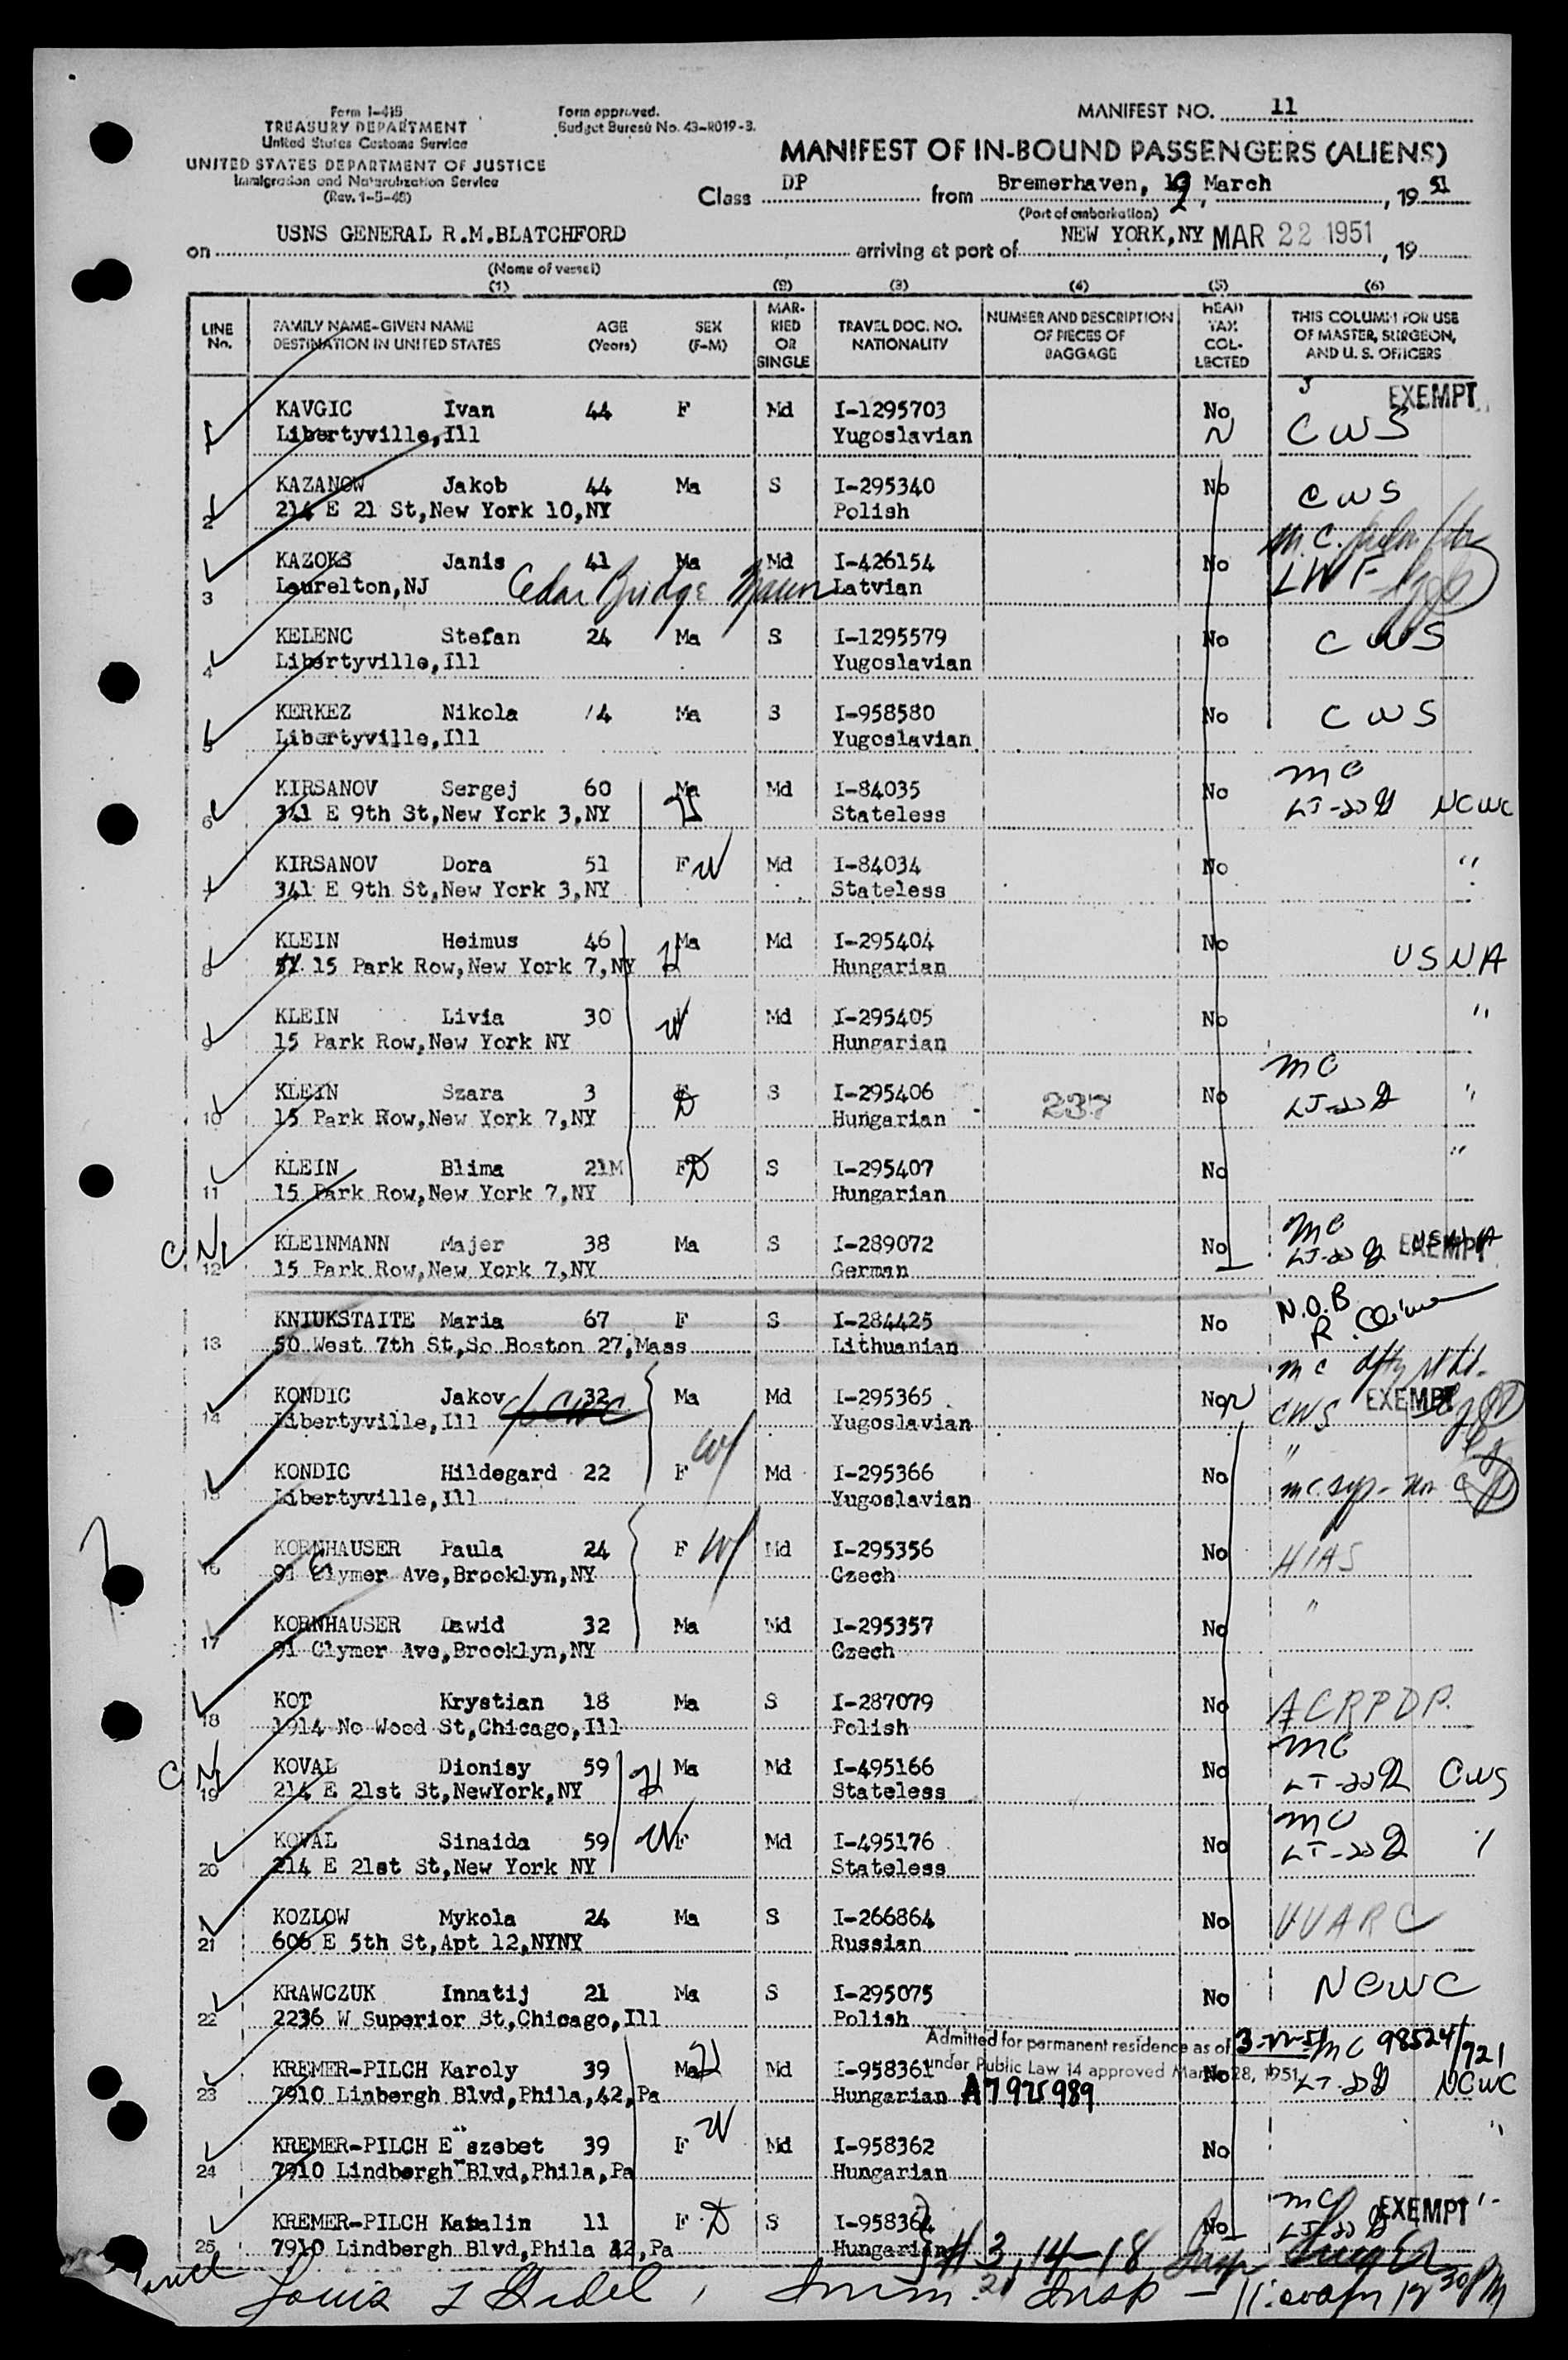 Form I-415
TREASURY DEPARTMENT
United States Customs Service
UNITED STATES DEPARTMENT OF JUSTICE
Immigration and Naturalization Service
(Rev. 1-5-48)
Form approved.
Budget Bureau No. 43-R019-3.
MANIFEST NO. 11
MANIFEST OF IN-BOUND PASSENGERS (ALIENS)
Class DP from Bremerhaven, 12, March, 19 51
(Port of embarkation)
on USNS GENERAL R.M.BLATCHFORD arriving at port of NEW YORK,NY MAR 22 1951, 19
(Name of vessel)
(1) (2) (3) (4) (5) (6)
LINE No. FAMILY NAME-GIVEN NAME DESTINATION IN UNITED STATES AGE (Years) SEX (F-M) MARRIED OR SINGLE TRAVEL DOC. NO. NATIONALITY NUMBER AND DESCRIPTION OF PIECES OF BAGGAGE HEAD TAX COLLECTED THIS COLUMN FOR USE OF MASTER, SURGEON, AND U. S. OFFICERS
EXEMPT
KAVGIC Ivan 44 F Md I-1295703 No CWS
1 Libertyville,Ill Yugoslavian N
KAZANOW Jakob 44 Ma S I-295340 No CWS
2 214 E 21 St,New York 10,NY Polish
M.C.
KAZOKS Janis 41 Ma Md I-426154 No LWF
3 Laurelton,NJ Cedar Bridge Latvian
KELENC Stefan 24 Ma S I-1295579 No CWS
4 Libertyville,Ill Yugoslavian
KERKEZ Nikola 4 Ma S I-958580 No CWS
5 Libertyville,Ill Yugoslavian
MC
KIRSANOV Sergej 60 Ma Md I-84035 No NCWC
6 341 E 9th St,New York 3,NY H Stateless
KIRSANOV Dora 51 F W Md I-84034 No "
7 341 E 9th St,New York 3,NY Stateless
KLEIN Heimus 46 H Ma Md I-295404 No USNA
8 15 Park Row,New York 7,NY Hungarian
KLEIN Livia 30 W Md I-295405 No "
9 15 Park Row,New York NY Hungarian
MC
KLEIN Szara 3 F D S I-295406 237 No "
10 15 Park Row,New York 7,NY Hungarian
KLEIN Blima 21M F D S I-295407 No "
11 15 Park Row,New York 7,NY Hungarian
C N MC
KLEINMANN Majer 38 Ma S I-289072 No USNA EXEMPT
12 15 Park Row,New York 7,NY German
KNIUKSTAITE Maria 67 F S I-284425 No N.O.B
13 50 West 7th St,So Boston 27,Mass Lithuanian
MC
KONDIC Jakov 32 Ma Md I-295365 No N CWS EXEMPT
14 Libertyville,Ill Yugoslavian
W "
KONDIC Hildegard 22 F Md I-295366 No
15 Libertyville,Ill Yugoslavian
KORNHAUSER Paula 24 F W Md I-295356 No HIAS
16 91 Clymer Ave,Brooklyn,NY Czech
KORNHAUSER Dawid 32 Ma Md I-295357 No "
17 91 Clymer Ave,Brooklyn,NY Czech
KOT Krystian 18 Ma S I-287079 No ACRPDP.
18 1914 No Wood St,Chicago,Ill Polish
C N MC
KOVAL Dionisy 59 H Ma Md I-495166 No CWS
19 214 E 21st St,NewYork,NY Stateless
MC
KOVAL Sinaida 59 W F Md I-495176 No
20 214 E 21st St,New York NY Stateless
KOZLOW Mykola 24 Ma S I-266864 No UUARC
21 606 E 5th St,Apt 12,NYNY Russian
KRAWCZUK Innatij 21 Ma S I-295075 No NCWC
22 2236 W Superior St,Chicago,Ill Polish
Admitted for permanent residence as of 3-22-51 MC 98524/921
under Public Law 14 approved March 28, 1951
KREMER-PILCH Karoly 39 Ma H Md I-958361 No NCWC
23 7910 Linbergh Blvd,Phila,42,Pa Hungarian A7975989
KREMER-PILCH E szebet 39 F W Md I-958362 No "
24 7910 Lindbergh Blvd,Phila,Pa Hungarian
MC EXEMPT
KREMER-PILCH Katalin 11 F D S I-958364 No
25 7910 Lindbergh Blvd,Phila 42,Pa Hungarian
# 3, 14-18 Insp
Louis Imm. Insp